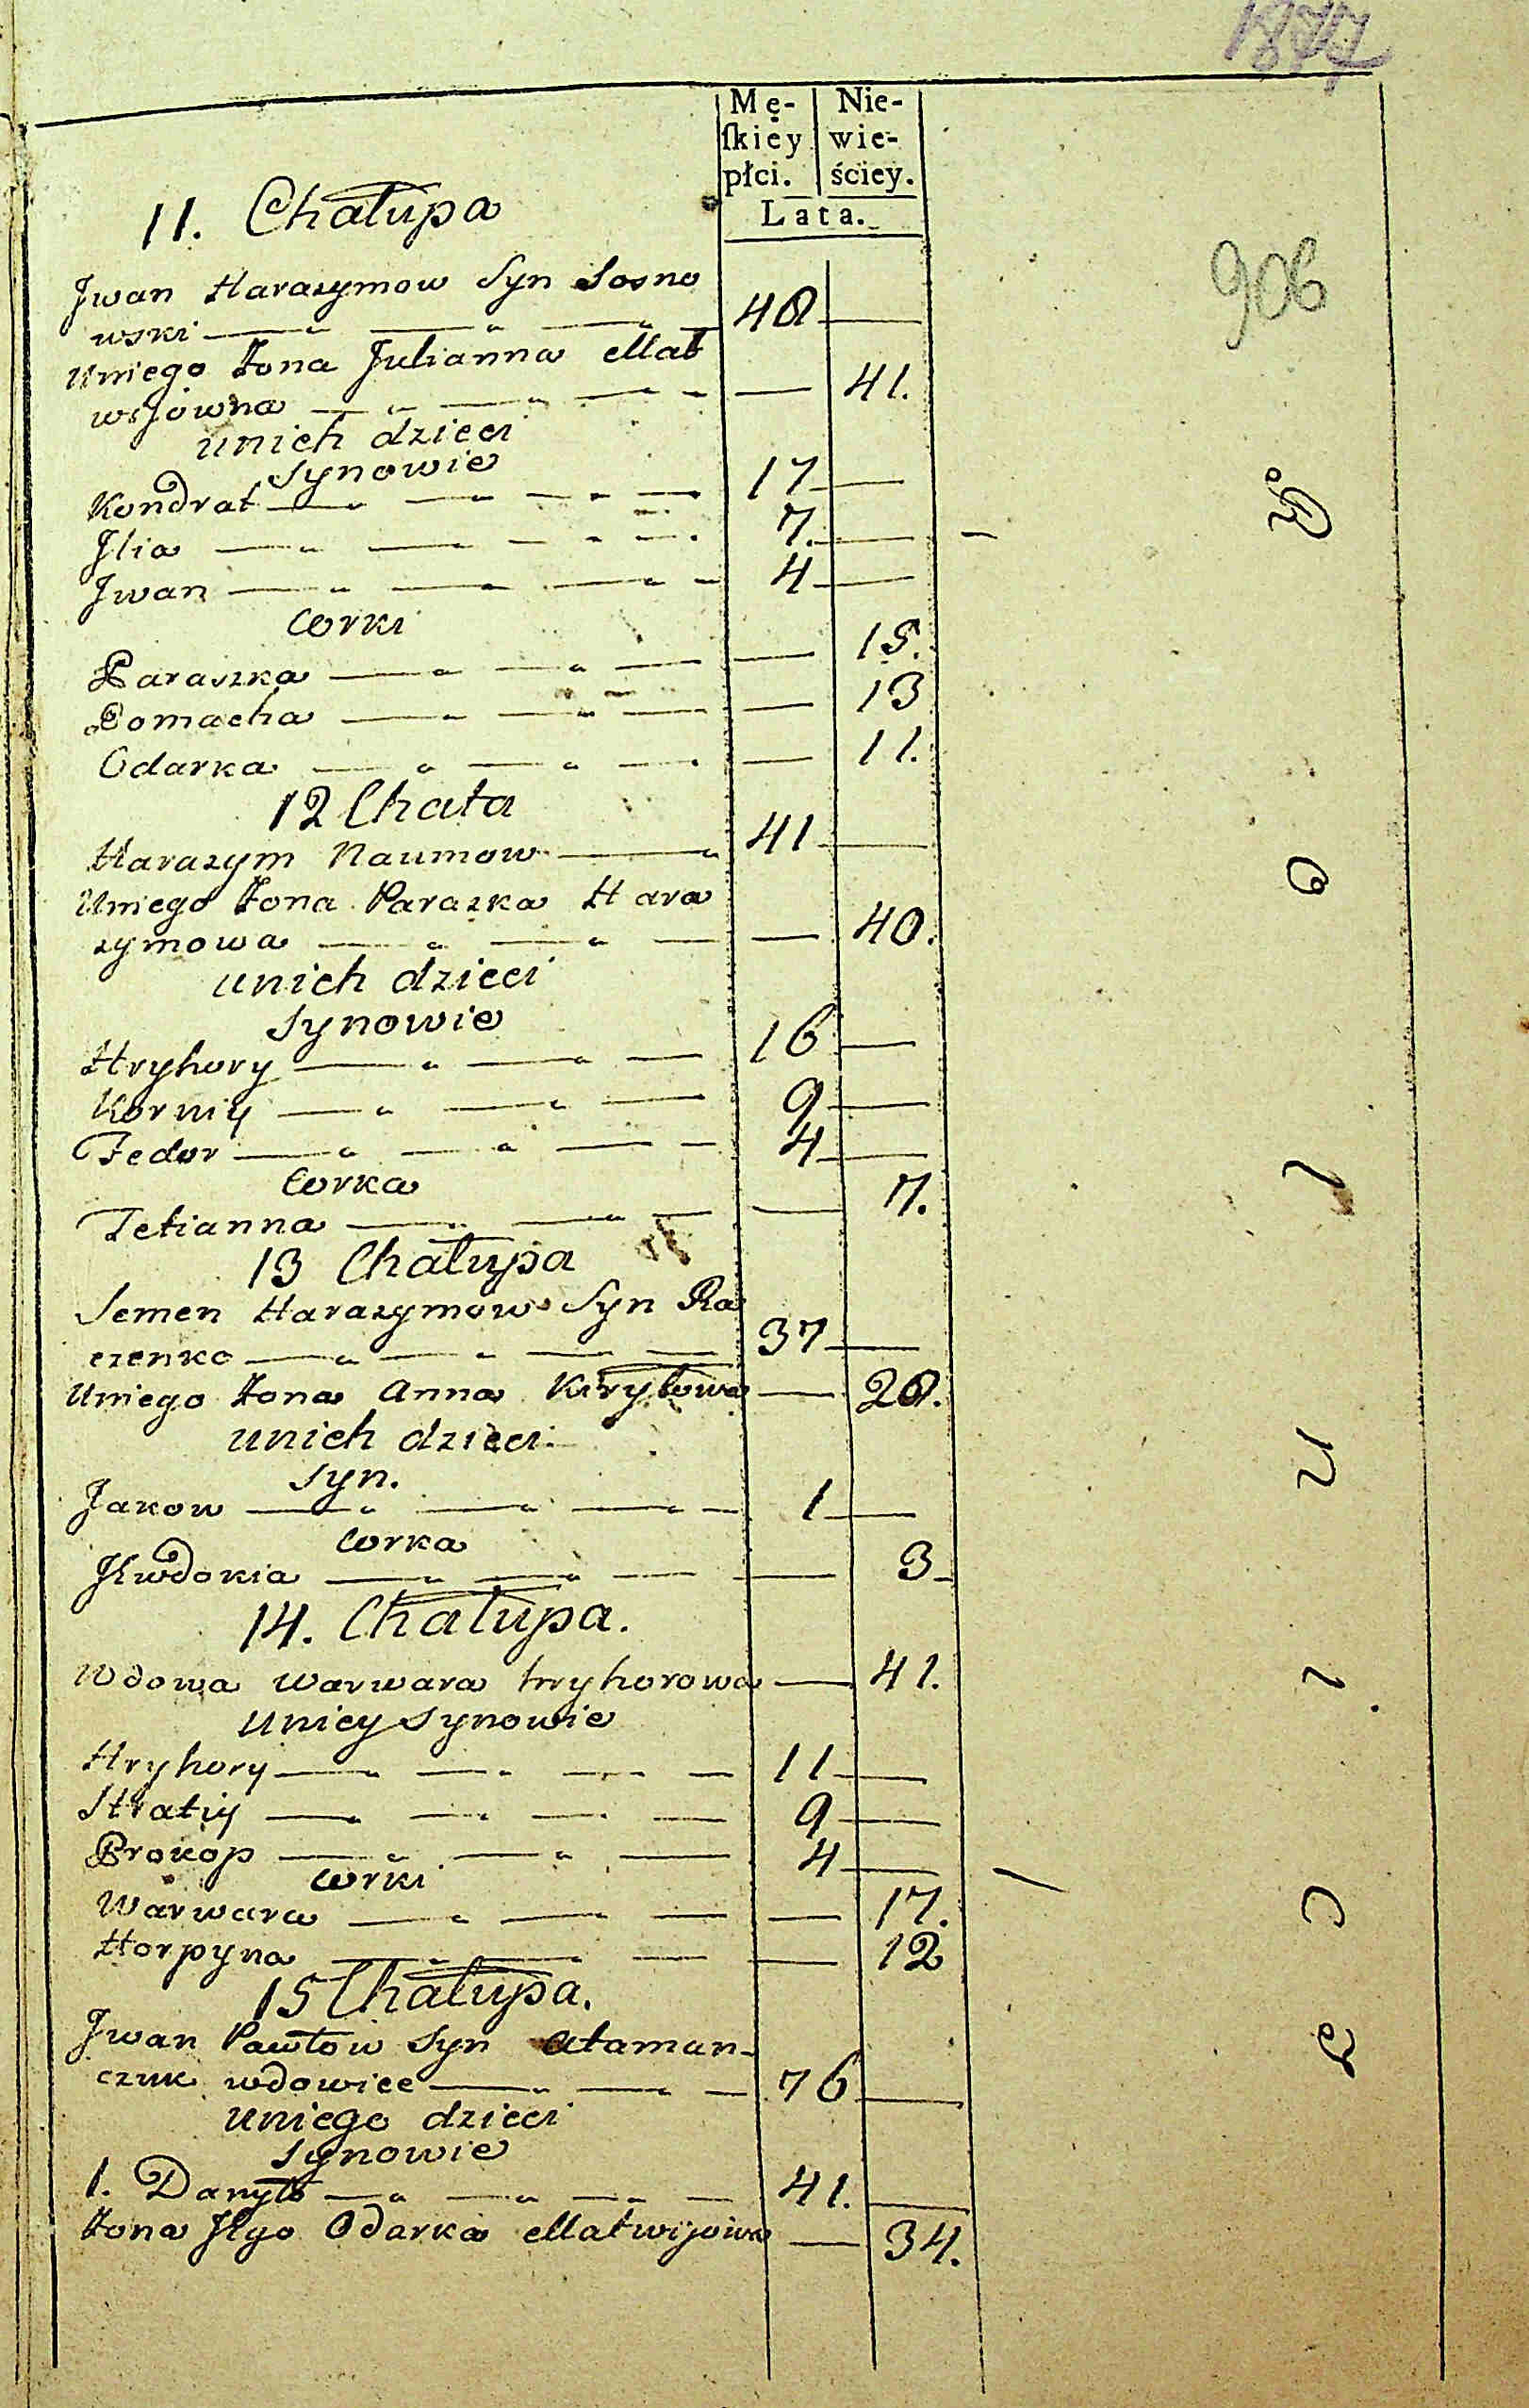 1877
Mę-
ſkiey
płci.
Nie-
wie-
ściey.
Lata.
906
11. Chałupa
Jwan Harazymow Syn Sosno
wski 48
Uniego Żona Julianna Mat
wijowna 41.
unich dzieci
Synowie
Kondrat 17
Jlia 7.
Jwan 4
Corki
Paraszka 15.
Domacha 13
Odarka 11.
12 Chata
Harazym Naumow 41
Uniego Żona Paraszka Hara
zymowa 40.
unich dzieci
Synowie
Hryhory 16
Korniy 9
Fedor 4
Corka
Tetianna 7.
13 Chałupa
Semen Harazymow Syn Ra
czenko 37
Uniego Żona Anna Kiryłowa 28.
unich dzieci
Syn.
Jakow 1
Corka
Jewdokia 3
14. Chałupa.
Wdowa Warwara Hryhorowa 41.
Uniey Synowie
Hryhory 11
Stratiy 9
Prokop 4
Corki
Warwara 17.
Horpyna 12
15 Chałupa.
Jwan Pawłow Syn Ataman-
czuk wdowiec 76
Uniego dzieci
Synowie
1. Danyło 41.
Żona Jego Odarka Matwijowna 34.